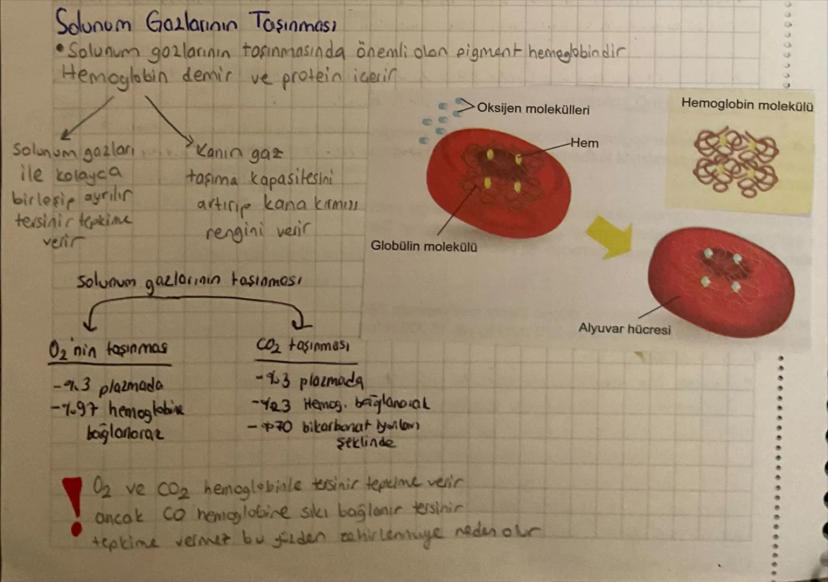 Solunum Gazlarının Taşınması
• Solunum gazlarının taşınmasında önemli olan pigment hemoglobindir
Hemoglobin demir ve protein içerir
Solunum gazları
ile kolayca
birleşip ayrılır
tersinir tepkime
verir
Kanın gaz
taşıma kapasitesini
artırıp kana kırmızı
rengini verir
Oksijen molekülleri
Hem
Globülin molekülü
Hemoglobin molekülü
Alyuvar hücresi
Solunum gazlarının taşınması
O₂'nin taşınması
-%3 plazmada
-%97 hemoglobine
bağlanarak
CO₂ taşınması
-%3 plazmada
-%23 Hemog. bağlanarak
-%70 bikarbonat iyonları
şeklinde
! O₂ ve CO₂ hemoglobinle tersinir tepkime verir
ancak CO hemoglobine sıkı bağlanır tersinir
tepkime vermez bu yüzden zehirlenmeye neden olur